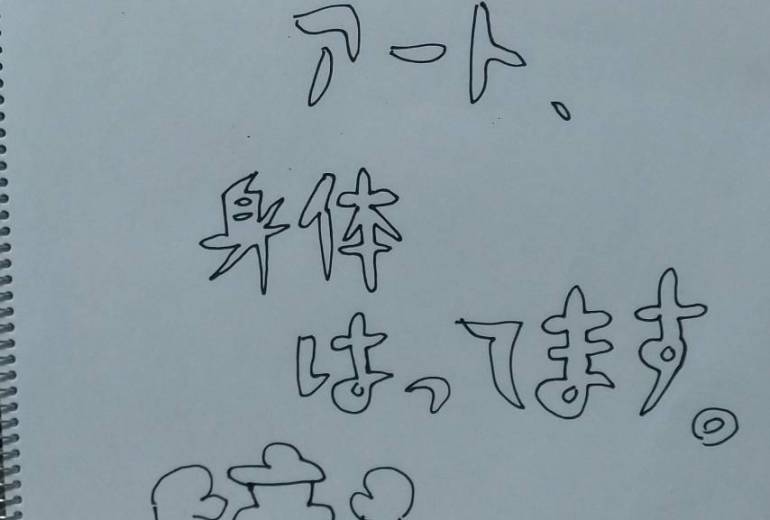 アート、
身体
はってます。